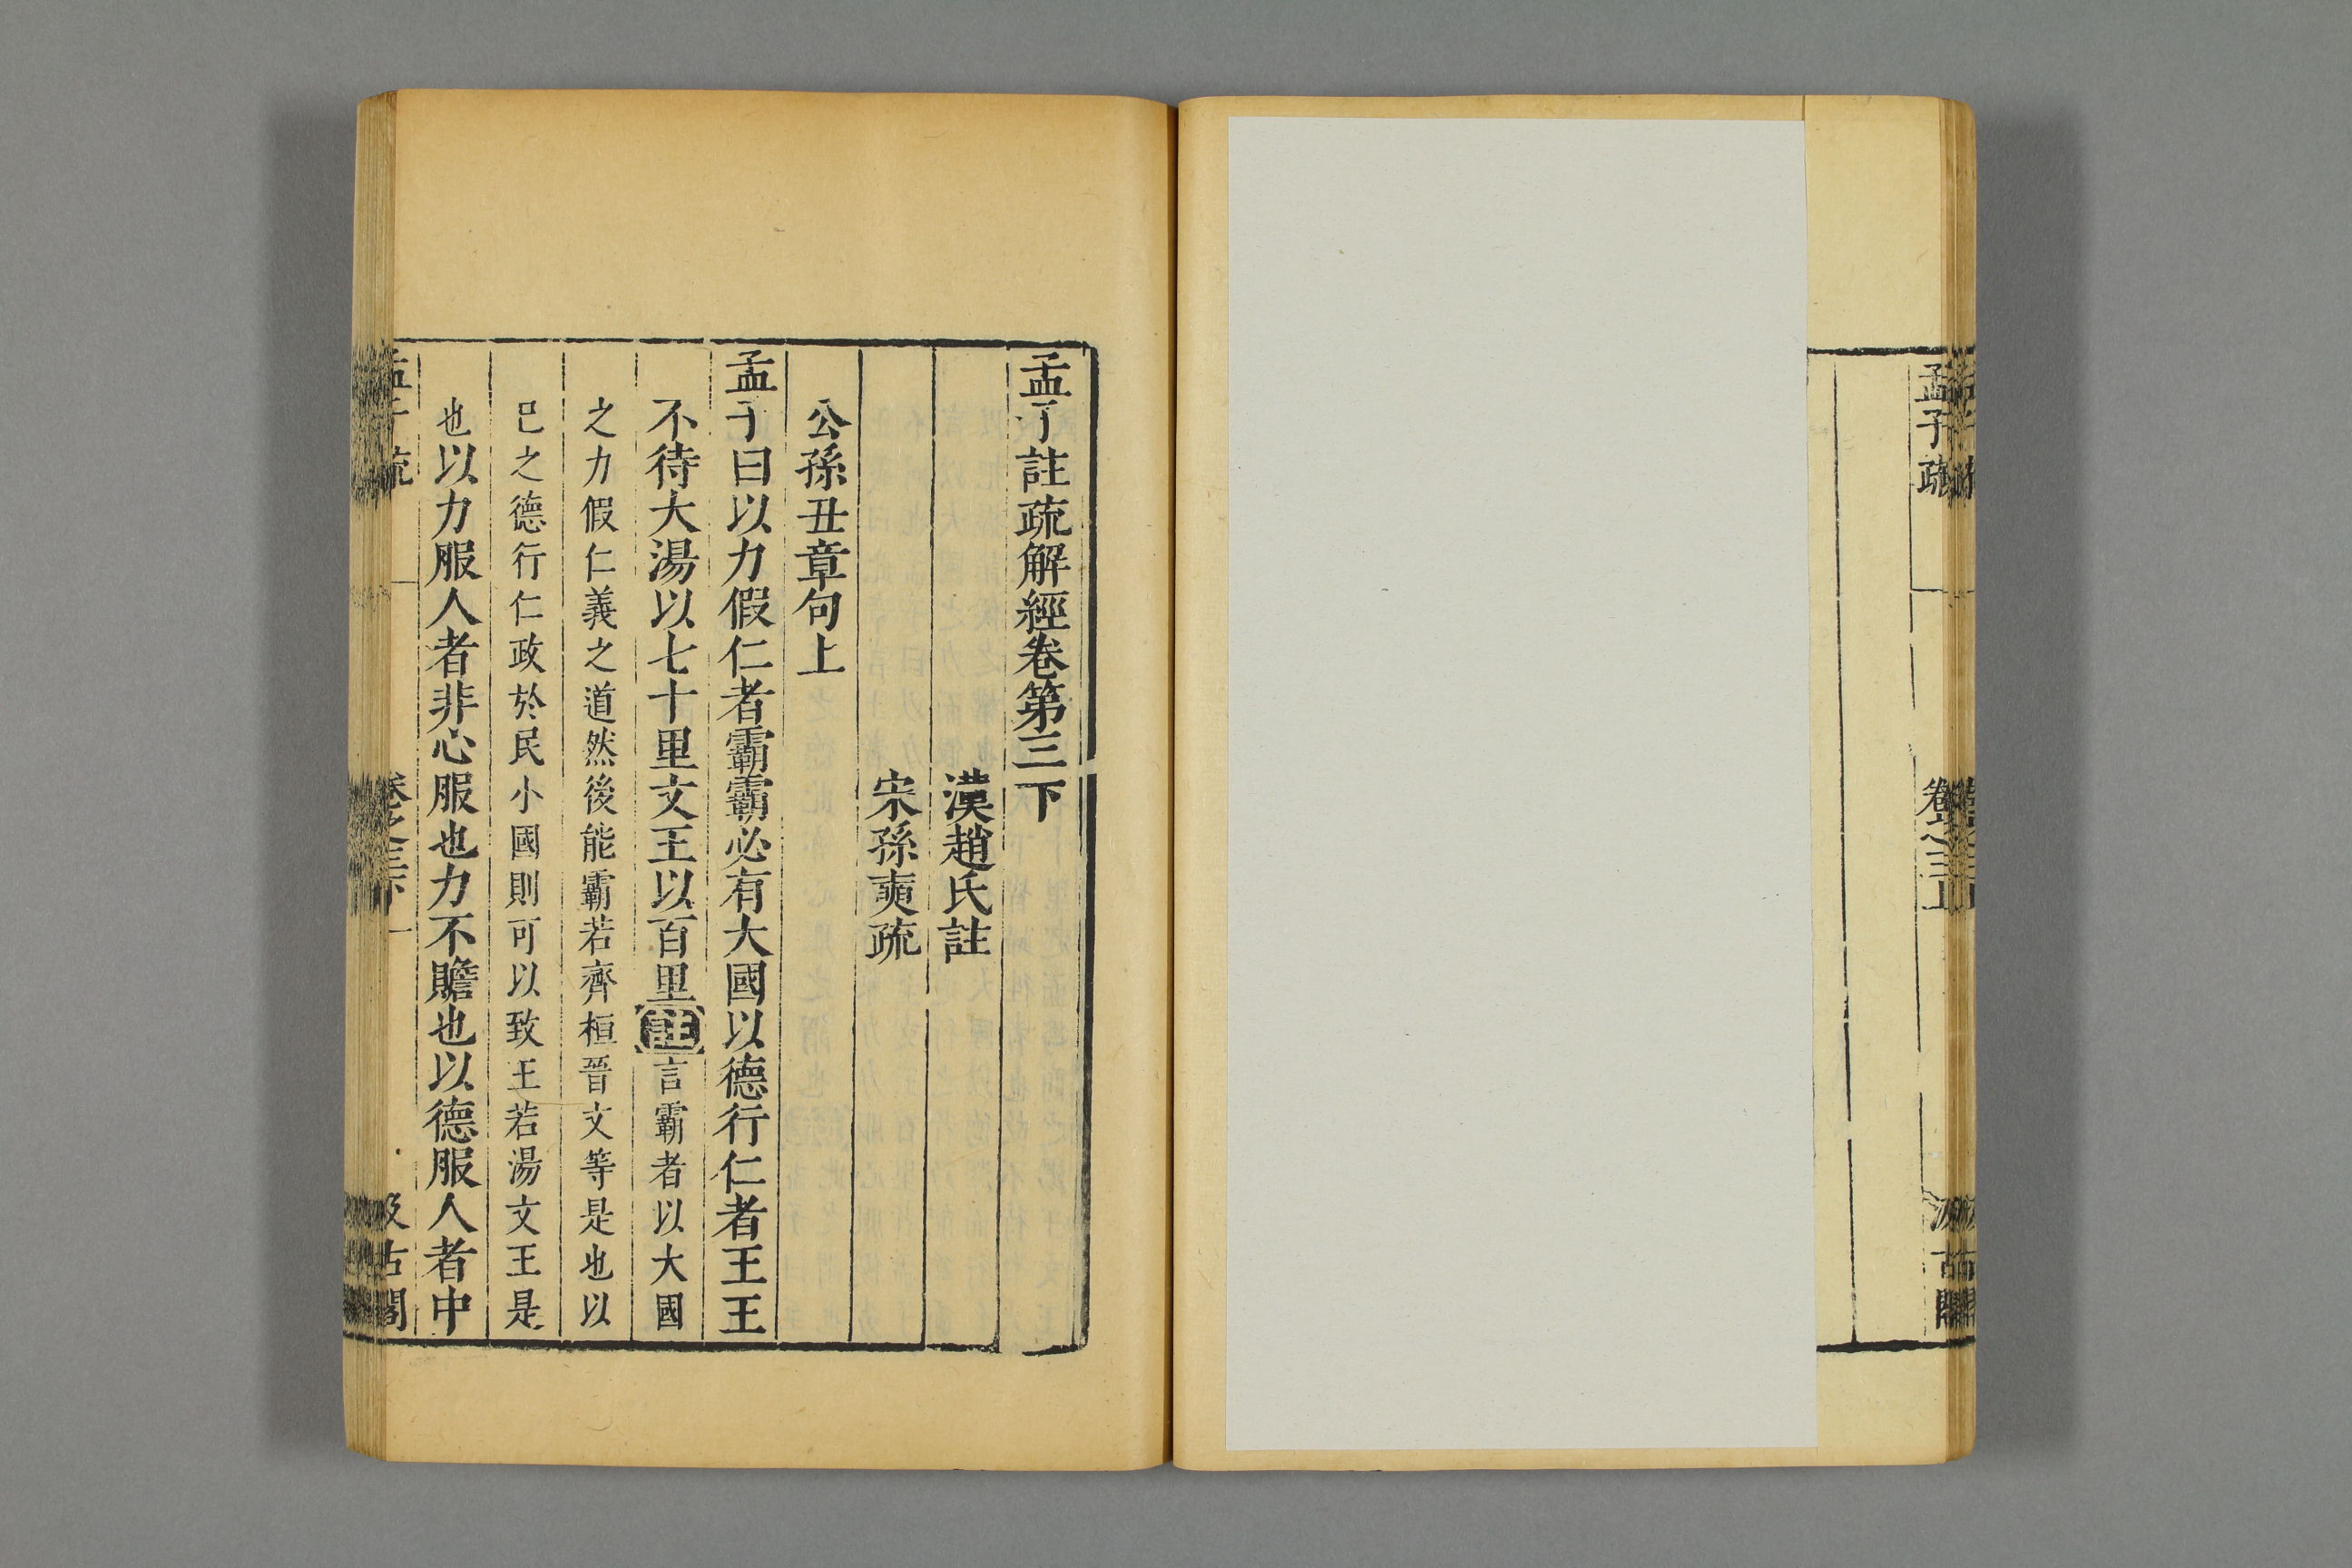 孟子疏
卷之三上
孟子註疏解經卷第三下
漢趙氏註
宋孫奭疏
公孫丑章句上
孟子曰以力假仁者霸霸必有大國以德行仁者王王
不待大湯以七十里文王以百里註言霸者以大國
之力假仁義之道然後能霸若齊桓晉文等是也以
已之德行仁政於民小國則可以致王若湯文王是
也以力服人者非心服也力不贍也以德服人者中
孟子疏
卷之三下
一
汲古閣